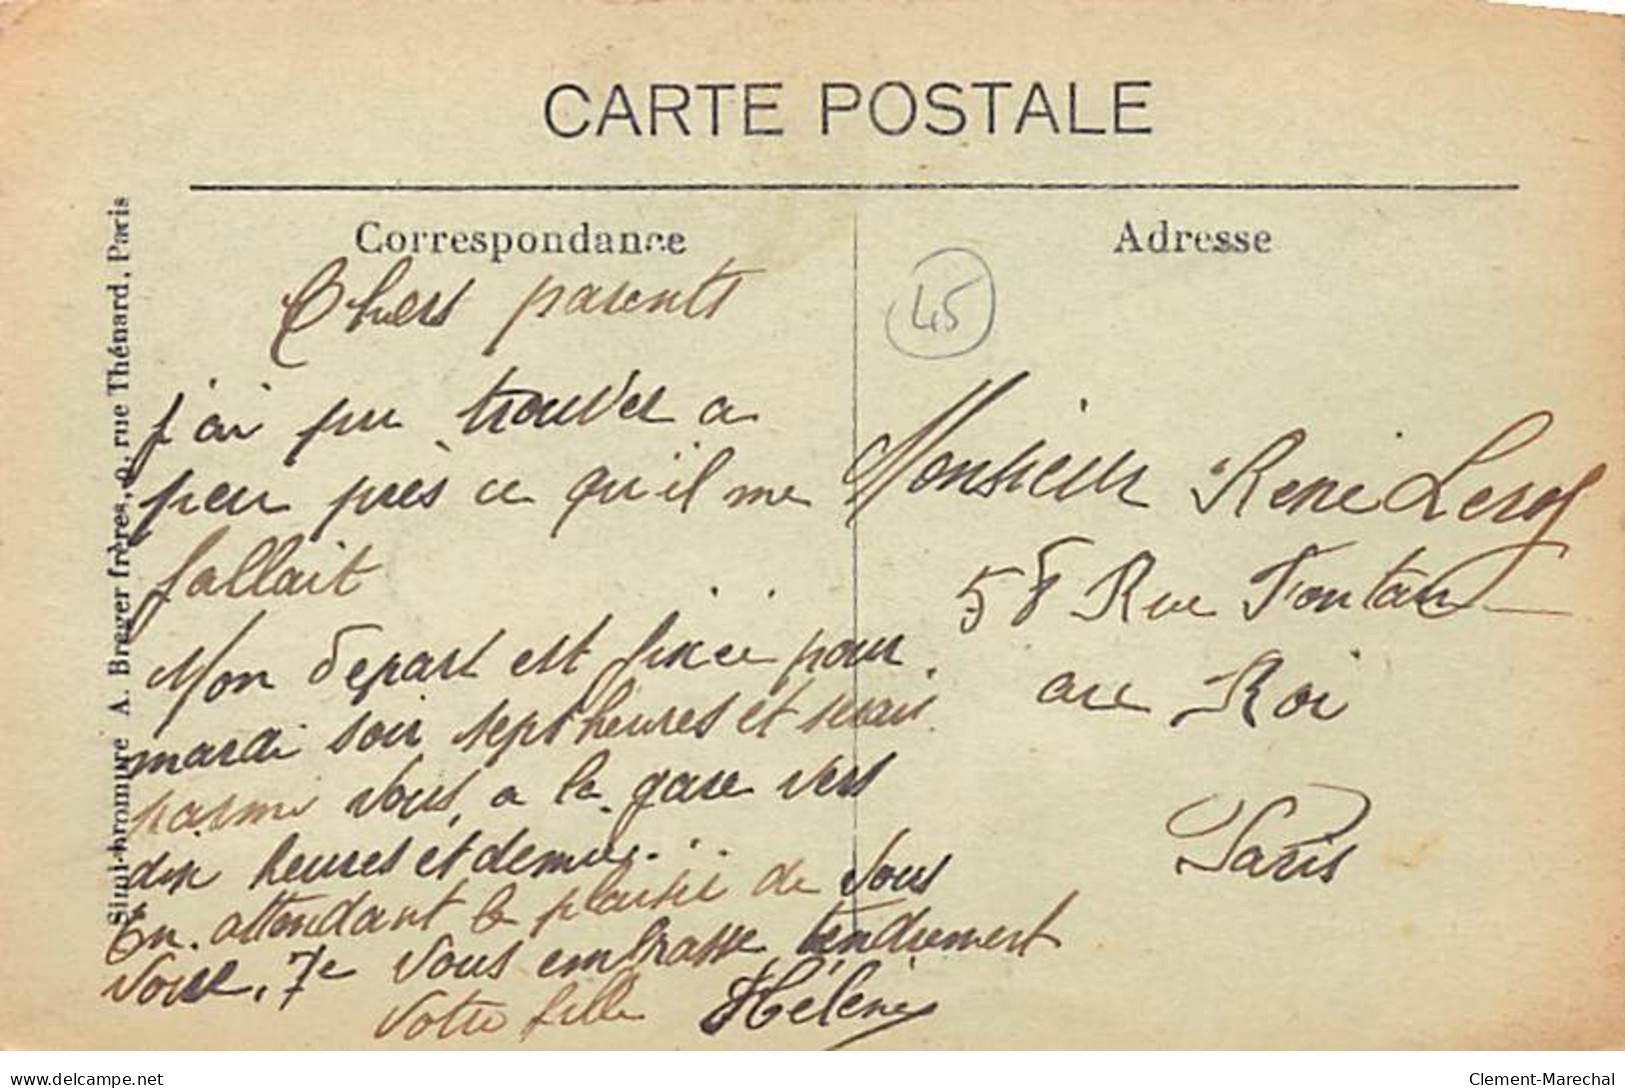 CARTE POSTALE
Correspondance
Chers parents
j'ai pu trouver a
peu près ce qu'il me
fallait
Mon départ est fixée pour
mardi soir sept heures et serais
parmi vous, a la gare vers
dix heures et demie...
En attendant le plaisir de vous
voir, Je vous embrasse tendrement
votre fille Hélène
Adresse
45
Monsieur René Leroy
58 Rue Fontaine
au Roi
Paris
Simi-bromure A. Breger frères, 9, rue Thénard, Paris
delcampe.net
Clement-Marechal